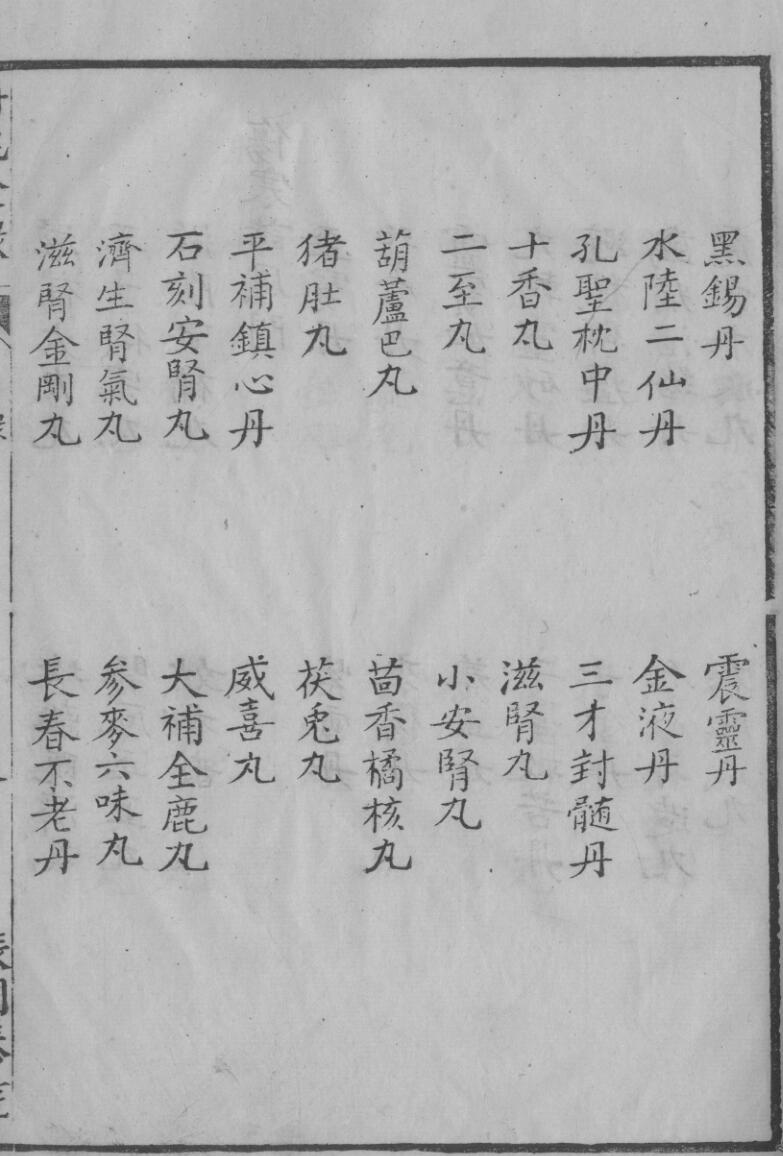 黑錫丹
震靈丹
水陸二仙丹
金液丹
孔聖枕中丹
三才封髓丹
十香丸
滋腎丸
二至丸
小安腎丸
葫蘆巴丸
茴香橘核丸
猪肚丸
茯兎丸
平補鎮心丹
威喜丸
石刻安腎丸
大補全鹿丸
濟生腎氣丸
參麥六味丸
滋腎金剛丸
長春不老丹